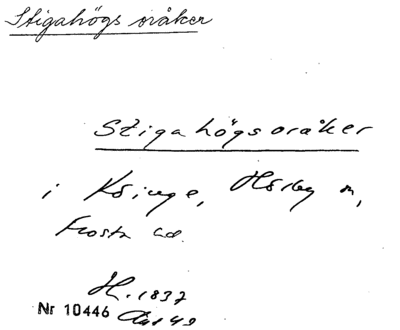 Stigahögs oråker
Stigahögsoråker
i Kvinge, Hörby sn,
Frosta hd.
H. 1837
Nr 10446